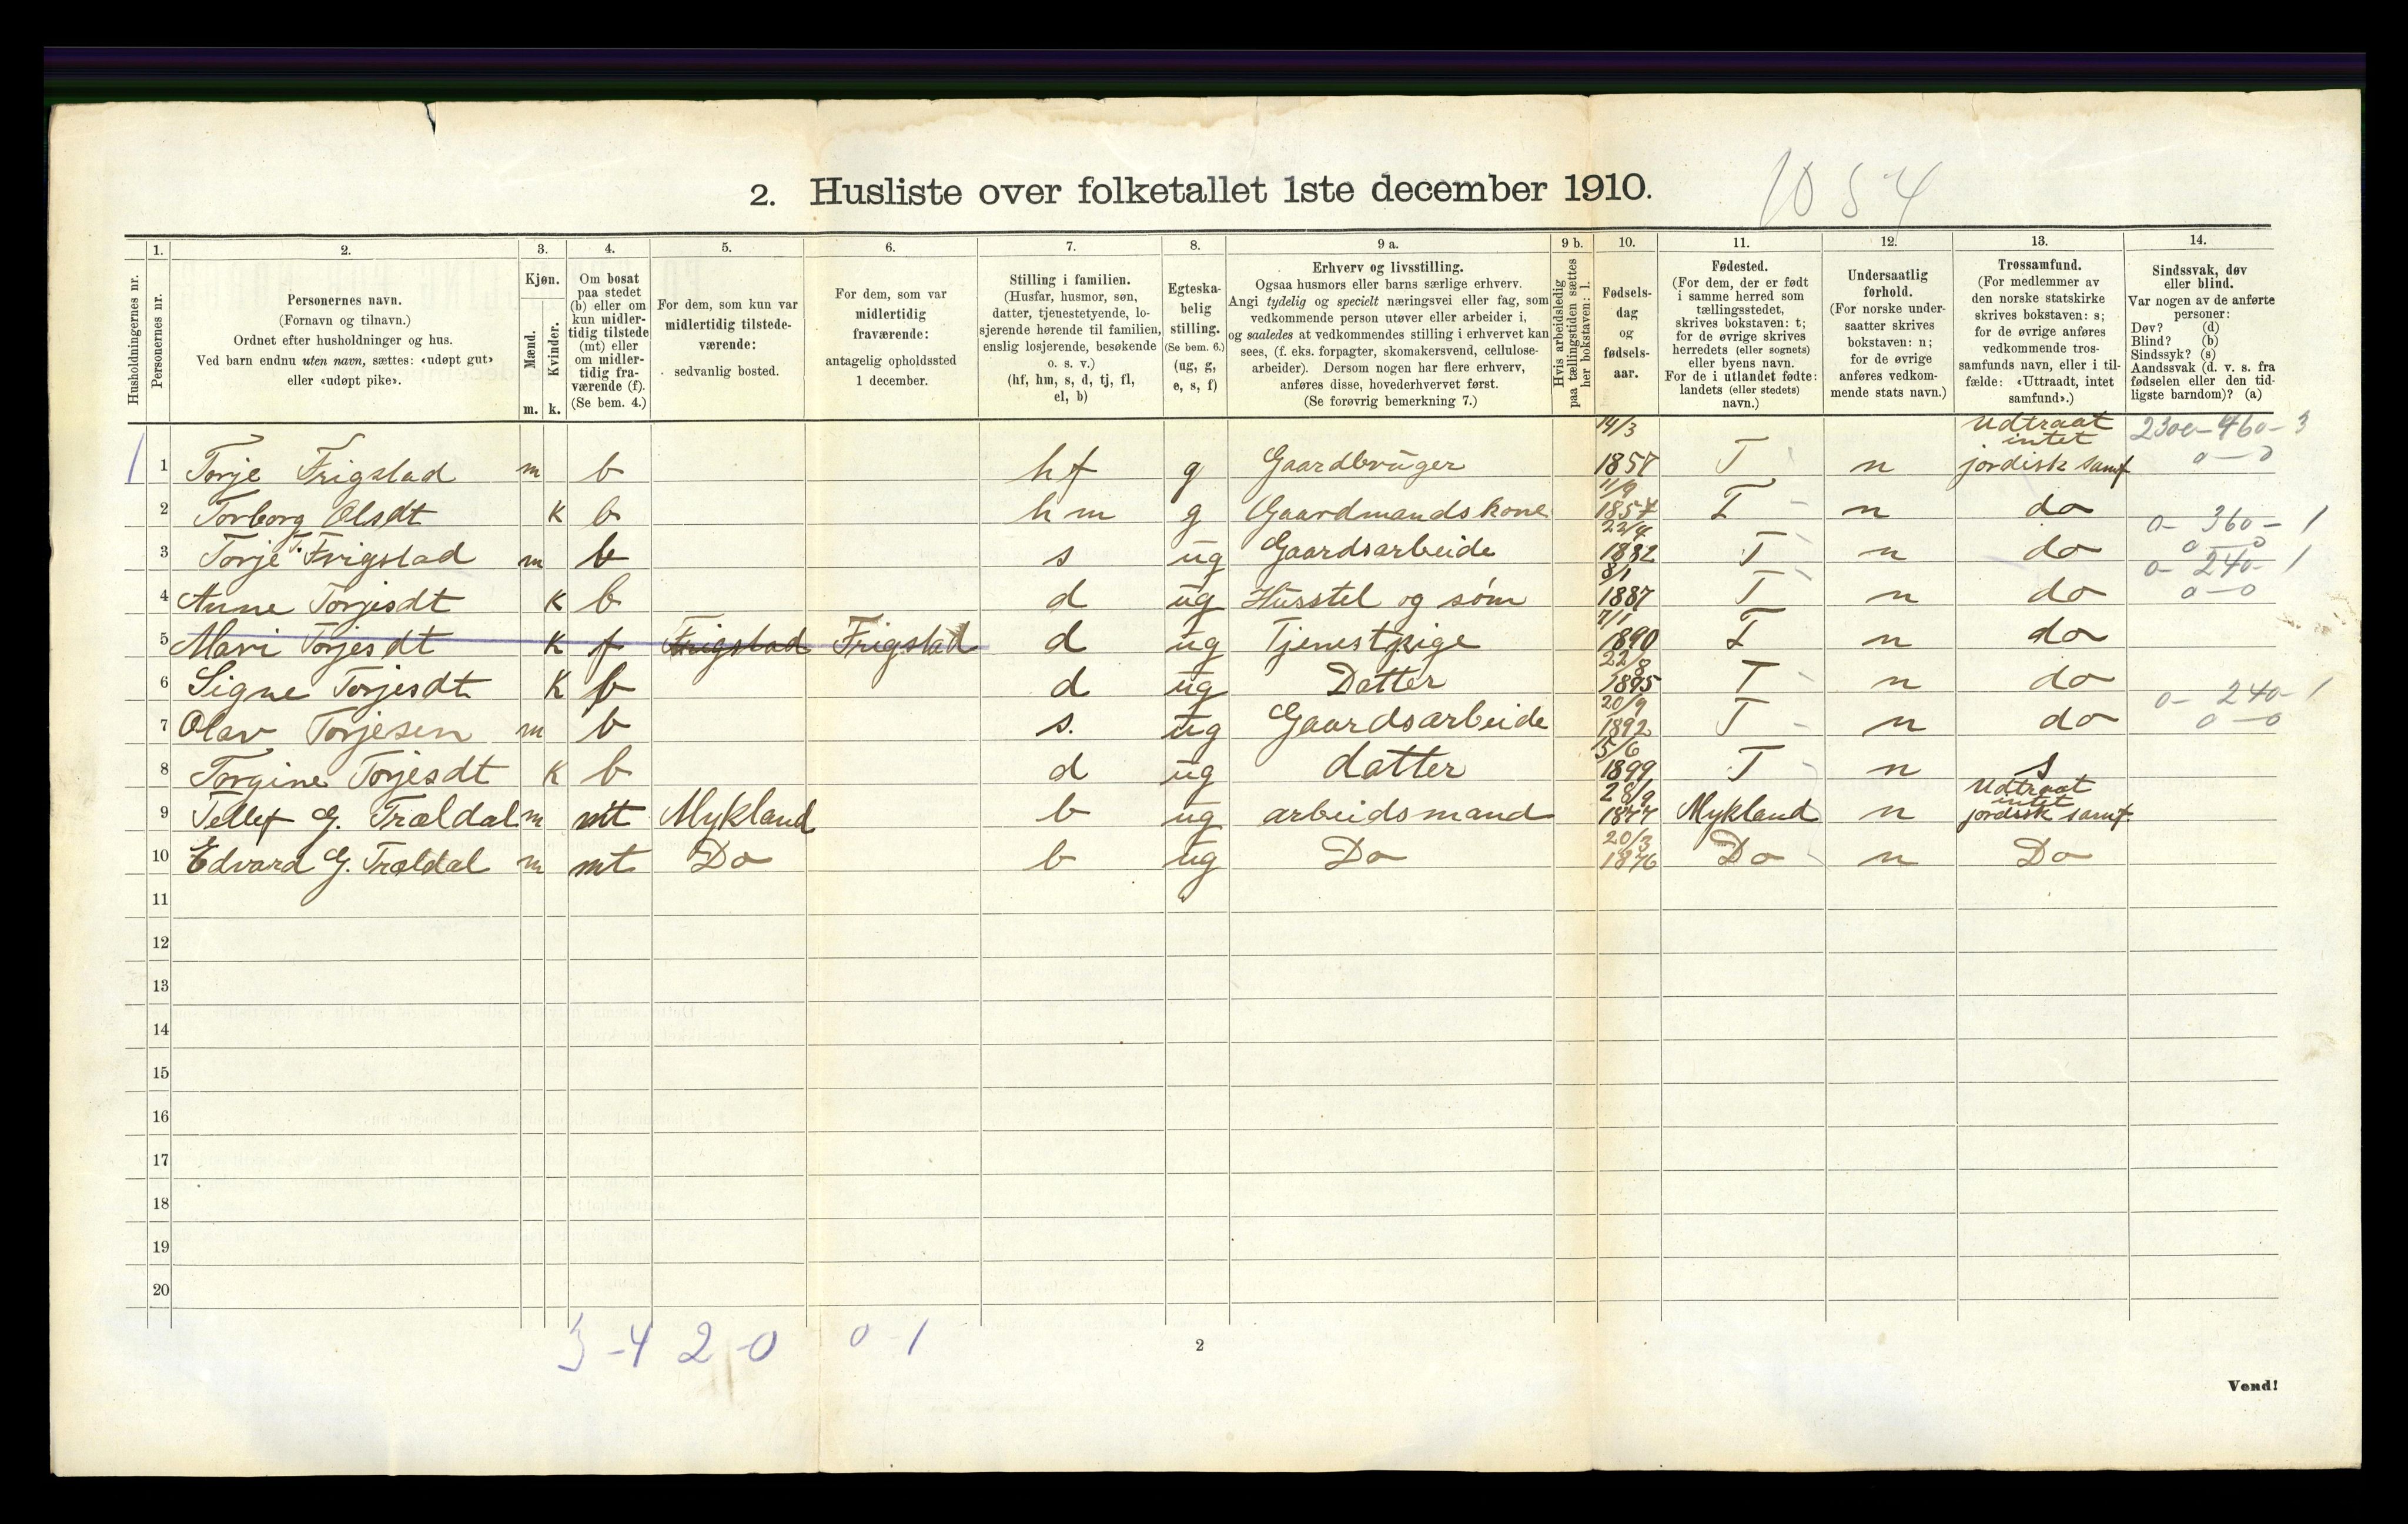 2. Husliste over folketallet 1ste december 1910.
1054
Husholdningernes nr.
1.
Personernes nr.
2.
Personernes navn.
(Fornavn og tilnavn.)
Ordnet efter husholdninger og hus.
Ved barn endnu uten navn, sættes: «udøpt gut»
eller «udøpt pike».
3.
Kjøn.
Mænd.
Kvinder.
m. k.
4.
Om bosat
paa stedet
(b) eller om
kun midler-
tidig tilstede
(mt) eller
om midler-
tidig fra-
værende (f).
(Se bem. 4.)
5.
For dem, som kun var
midlertidig tilstede-
værende:
sedvanlig bosted.
6.
For dem, som var
midlertidig
fraværende:
antagelig opholdssted
1 december.
7.
Stilling i familien.
(Husfar, husmor, søn,
datter, tjenestetyende, lo-
sjerende hørende til familien,
enslig losjerende, besøkende
o. s. v.)
(hf, hm, s, d, tj, fl,
el, b)
8.
Egteska-
belig
stilling.
(Se bem. 6.)
(ug, g,
e, s, f)
9 a.
Erhverv og livsstilling.
Ogsaa husmors eller barns særlige erhverv.
Angi tydelig og specielt næringsvei eller fag, som
vedkommende person utøver eller arbeider i,
og saaledes at vedkommendes stilling i erhvervet kan
sees, (f. eks. forpagter, skomakersvend, cellulose-
arbeider). Dersom nogen har flere erhverv,
anføres disse, hovederhvervet først.
(Se forøvrig bemerkning 7.)
9 b.
Hvis arbeidsledig
paa tællingstiden sættes
her bokstaven: l.
10.
Fødsels-
dag
og
fødsels-
aar.
11.
Fødested.
(For dem, der er født
i samme herred som
tællingsstedet,
skrives bokstaven: t;
for de øvrige skrives
herredets (eller sognets)
eller byens navn.
For de i utlandet fødte:
landets (eller stedets)
navn.)
12.
Undersaatlig
forhold.
(For norske under-
saatter skrives
bokstaven: n;
for de øvrige
anføres vedkom-
mende stats navn.)
13.
Trossamfund.
(For medlemmer av
den norske statskirke
skrives bokstaven: s;
for de øvrige anføres
vedkommende tros-
samfunds navn, eller i til-
fælde: «Uttraadt, intet
samfund».)
14.
Sindssvak, døv
eller blind.
Var nogen av de anførte
personer:
Døv? (d)
Blind? (b)
Sindssyk? (s)
Aandssvak (d. v. s. fra
fødselen eller den tid-
ligste barndom)? (a)
1 1 Torje Frigstad m b hf g Gaardbrüger 14/3 1857 T n Udtraat intet jordisk samf 2300-460-3 0-0
2 Torborg Olsdt K b hm g Gaardmandskone 11/9 1857 T n do
3 Torje T. Frigstad m b s ug Gaardsarbeide 22/4 1882 T n do 0-360-1 0-0
4 Anne Torjesdt K b d ug Husstel og søm 8/1 1887 T n do 0-240-1 0-0
5 Mari Torjesdt K f Frigstad Frigstad d ug Tjenestpige 7/1 1890 T n do
6 Signe Torjesdt K b d ug Datter 22/8 1895 T n do
7 Olav Torjesen m b s. ug Gaardsarbeide 20/9 1892 T n do 0-240-1 0-0
8 Torgine Torjesdt K b d ug datter 5/6 1899 T n s
9 Tellef G. Trældal m mt Mykland b ug arbeidsmand 28/9 1877 Mykland n Udtraat intet jordisk samf.
10 Edvard G. Trældal m mt Do b ug Do 20/3 1876 Do n Do
11
12
13
14
15
16
17
18
19
20
3-4 2-0 0-1
2
Vend!